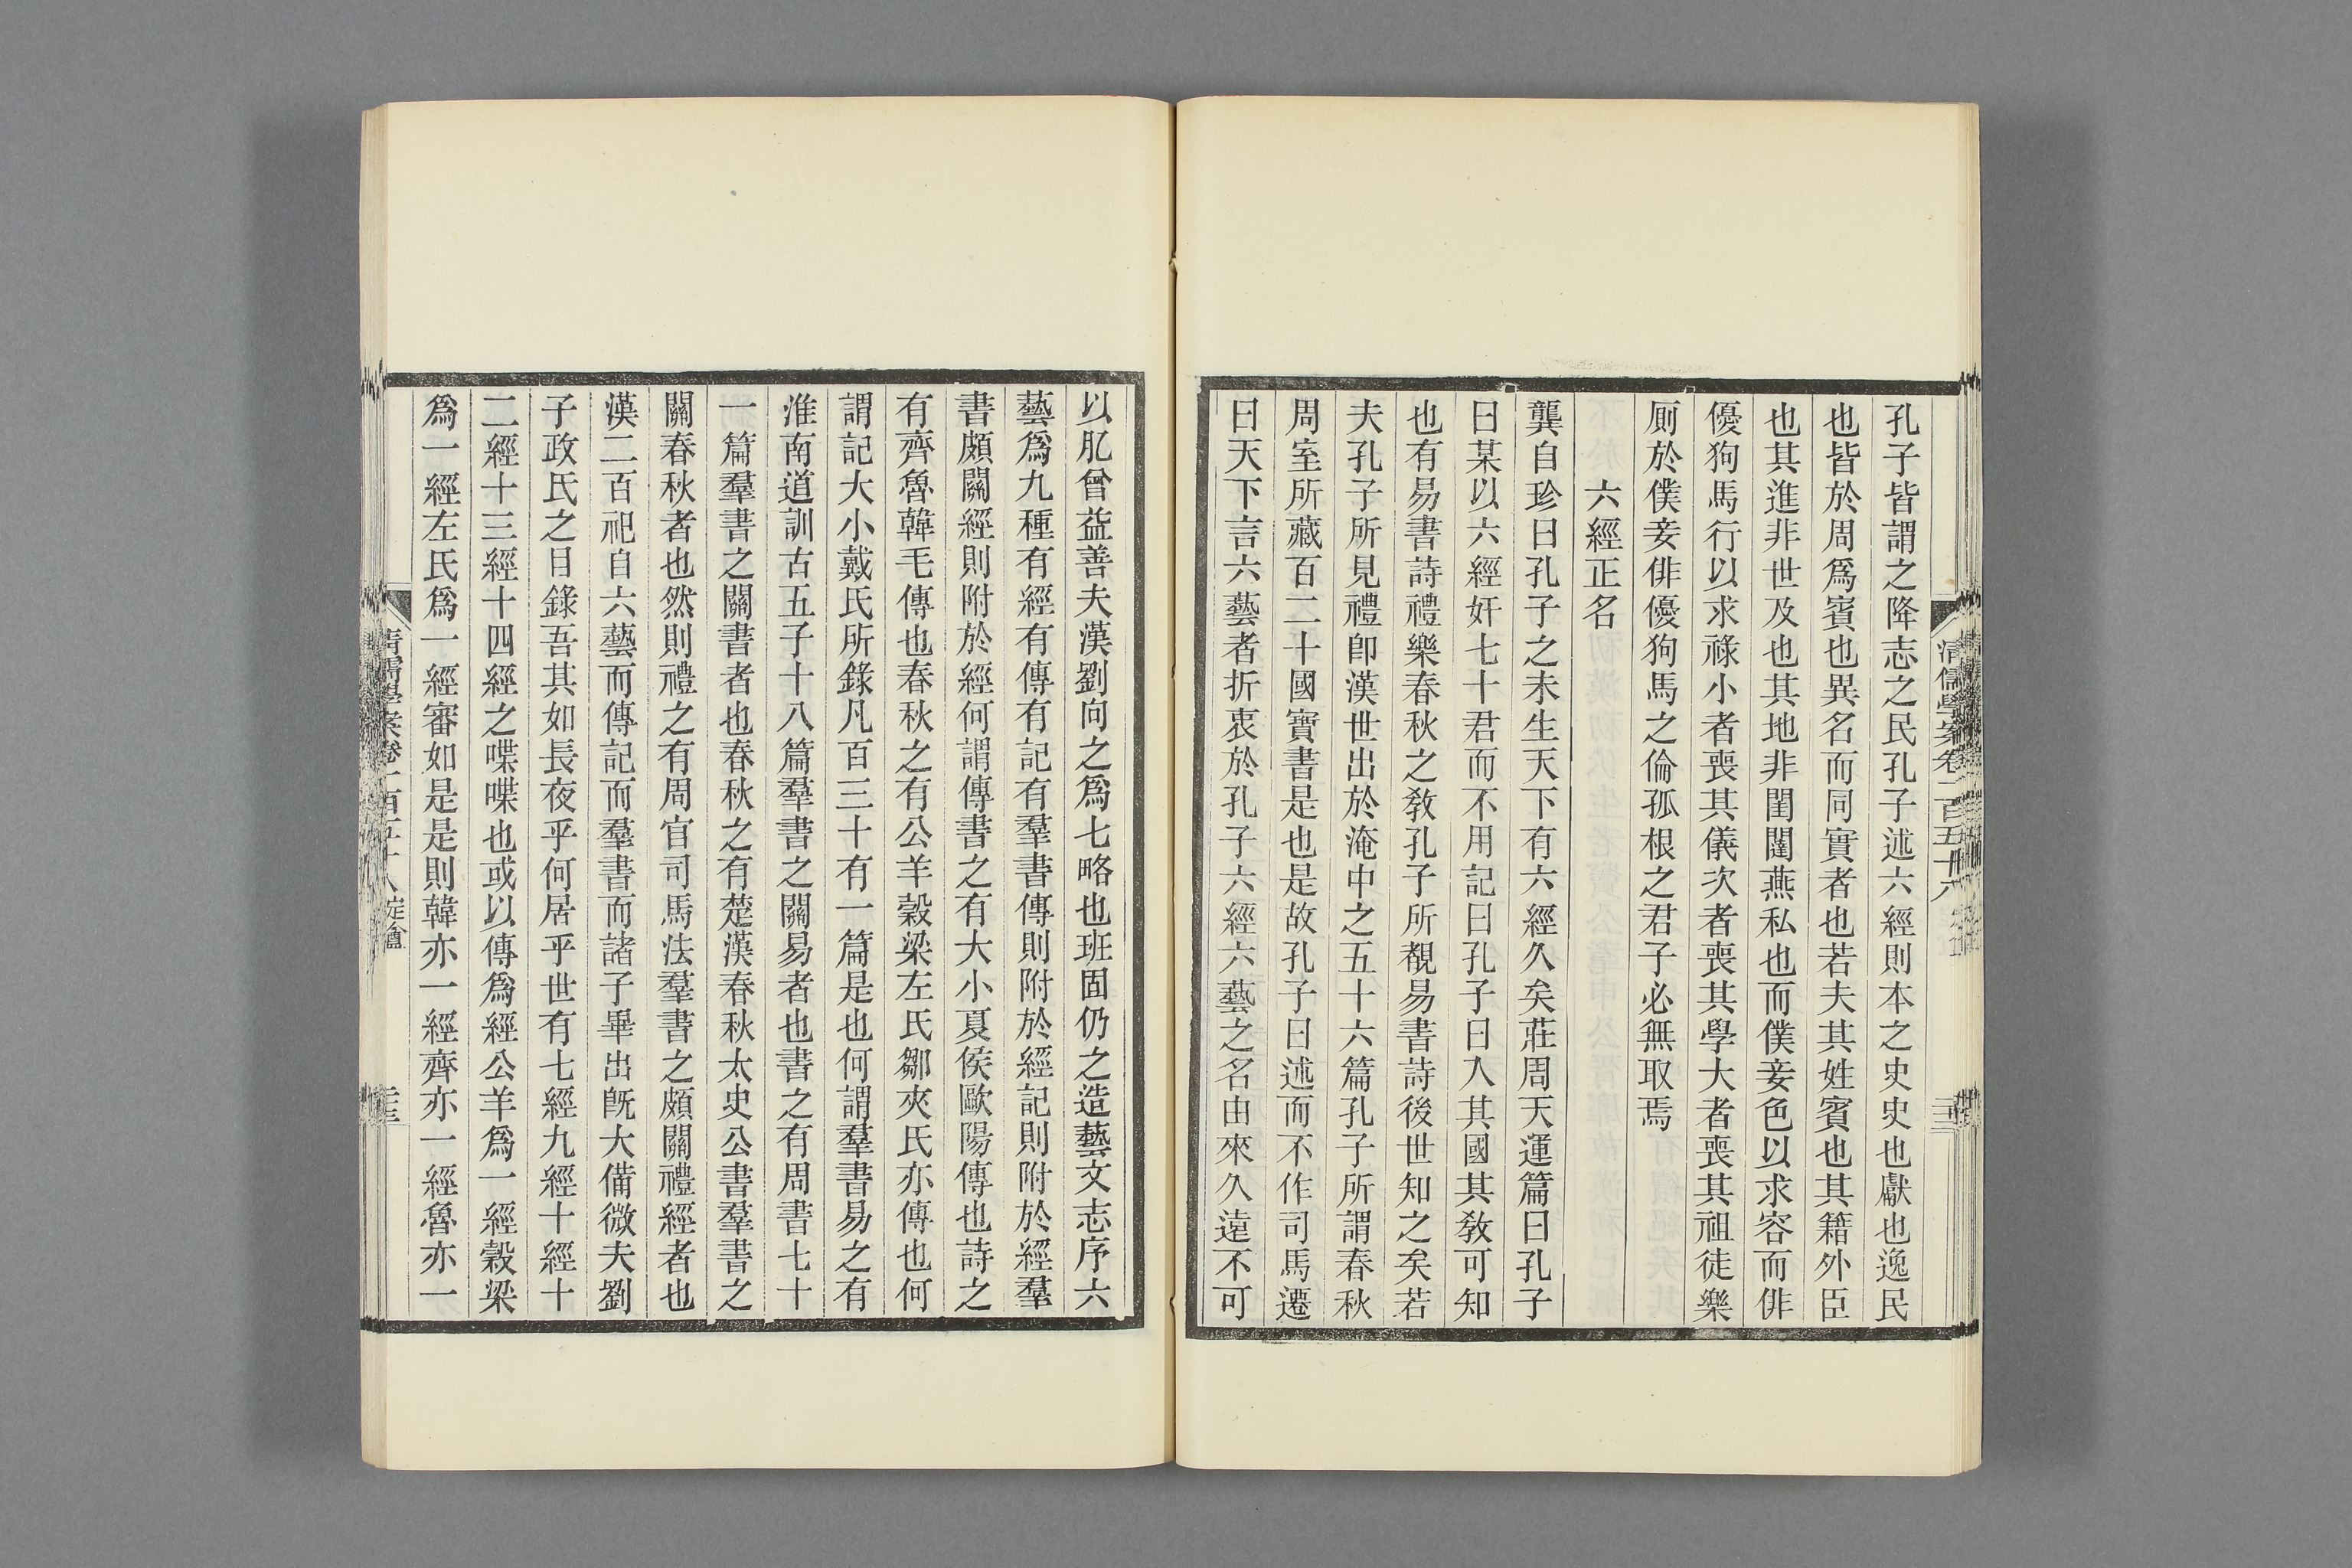 孔子皆謂之降志之民孔子述六經則本之史史也獻也逸民
也皆於周爲賓也異名而同實者也若夫其姓賓也其籍外臣
也其進非世及也其地非閨闥燕私也而僕妾色以求容而俳
優狗馬行以求祿小者喪其儀次者喪其學大者喪其祖徒樂
厠於僕妾俳優狗馬之倫孤根之君子必無取焉
六經正名
龔自珍曰孔子之未生天下有六經久矣莊周天運篇曰孔子
曰某以六經奸七十君而不用記曰孔子曰入其國其敎可知
也有易書詩禮樂春秋之敎孔子所覩易書詩後世知之矣若
夫孔子所見禮卽漢世出於淹中之五十六篇孔子所謂春秋
周室所藏百二十國寶書是也是故孔子曰述而不作司馬遷
曰天下言六藝者折衷於孔子六經六藝之名由來久遠不可
以肊曾益善夫漢劉向之爲七略也班固仍之造藝文志序六
藝爲九種有經有傳有記有羣書傳則附於經記則附於經羣
書頗關經則附於經何謂傳書之有大小夏侯歐陽傳也詩之
有齊魯韓毛傳也春秋之有公羊穀梁左氏鄒夾氏亦傳也何
謂記大小戴氏所錄凡百三十有一篇是也何謂羣書易之有
淮南道訓古五子十八篇羣書之關易者也書之有周書七十
一篇羣書之關書者也春秋之有楚漢春秋太史公書羣書之
關春秋者也然則禮之有周官司馬法羣書之頗關禮經者也
漢二百祀自六藝而傳記而羣書而諸子畢出旣大備微夫劉
子政氏之目錄吾其如長夜乎何居乎世有七經九經十經十
二經十三經十四經之喋喋也或以傳爲經公羊爲一經穀梁
爲一經左氏爲一經審如是是則韓亦一經齊亦一經魯亦一
清儒學案卷一百五十八